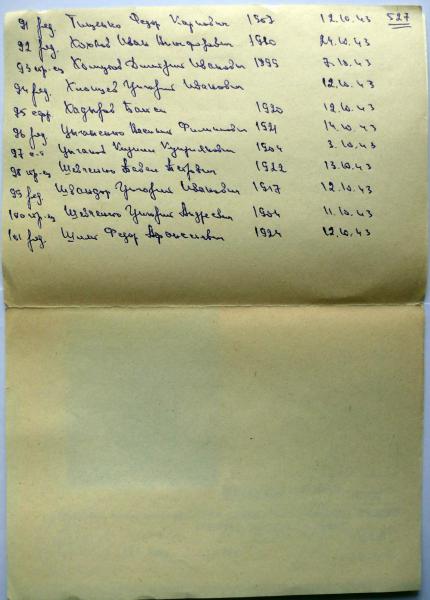 527
91 ряд. Тищенко Федор Карпович 1907 12.10.43
92 ряд. Иван Никифорович 1920 24.10.43
93 кр-ец Дмитрий Иванович 1899 7.10.43
94 ряд. Хлопцев Григорий Иванович 12.10.43
95 ефр. Кадыров 1920 12.10.43
96 ряд. Цыганенко Филиппович 1921 14.10.43
97 с-т Цыганов 1904 3.10.43
98 кр-ец Шевченко Павел Петрович 1922 13.10.43
99 ряд. Григорий Иванович 1917 12.10.43
100 кр-ец Шевченко Григорий Андреевич 1904 11.10.43
101 ряд. Федор Афанасьевич 1924 12.10.43